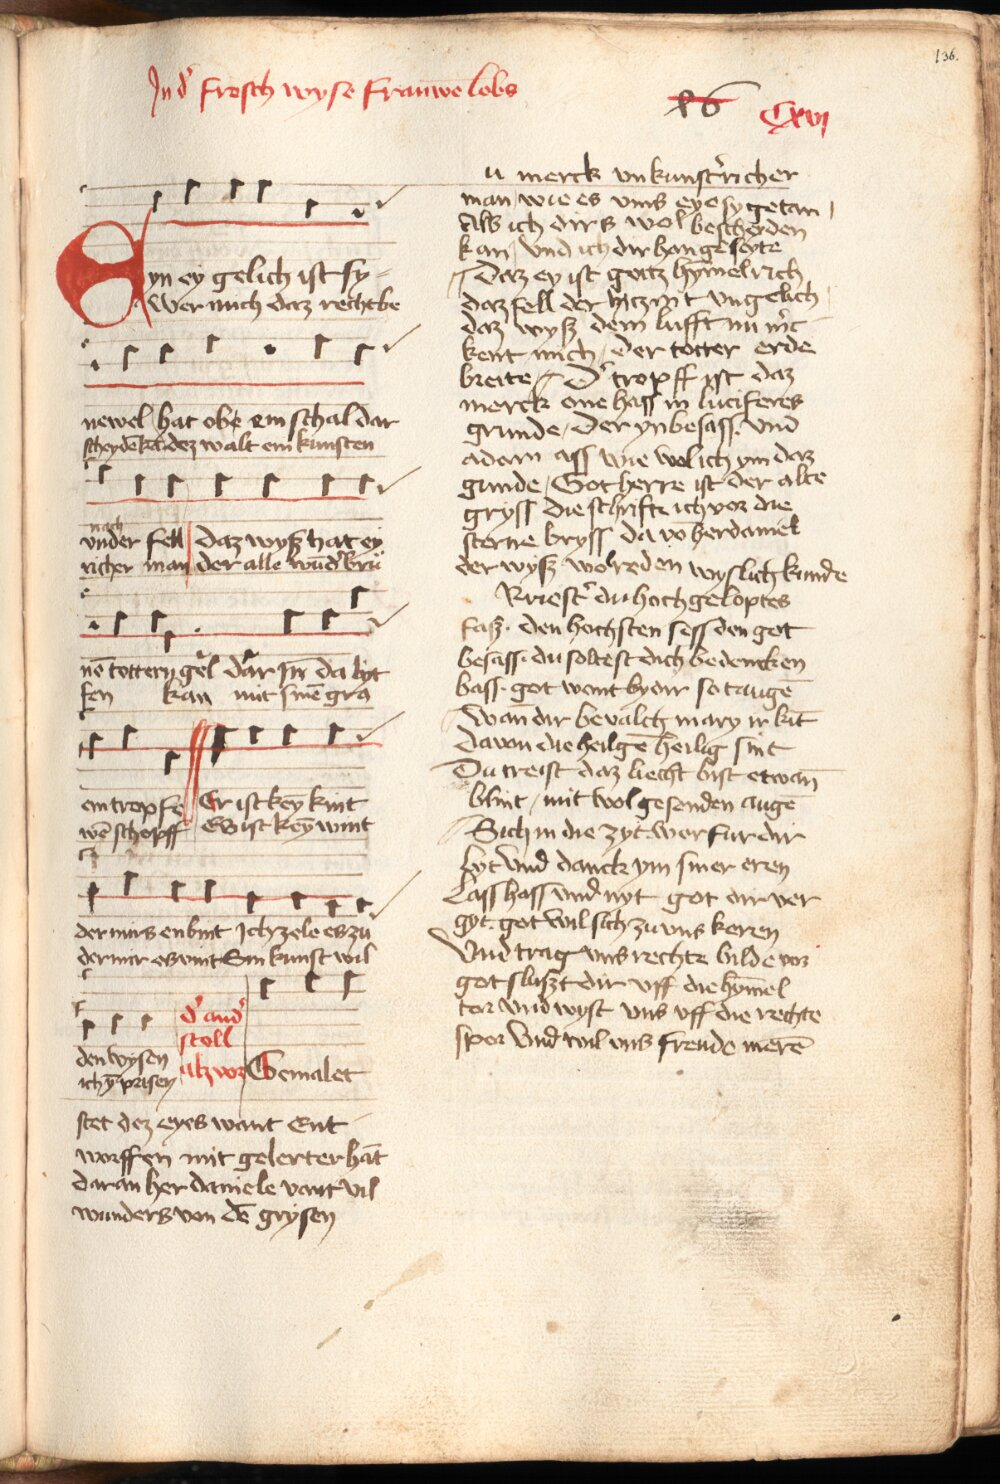 136.
Jn d' frosch wyse frauwēlobs
86 Cxvj
Eyn ey gelich ist sy=
wer mich daz recht be
newel hat obe ein schal dar
scheydē kā dez walt ein kunsten
nach
vnder fell daz wysz hat ey
richer man der alle wūd'
nē tottern gel dar Jn da lyt
fen kan mit sinē gra
ein tropfe Er ist keȳ kint
wē schopff Es ist keȳ wint
der mirs enbint Jch zele es zu
der mir es vint Sin kunst wil
den wysen
ich prisen
d' and'
stoll
Gemalet
stet dez eyes want Ent
worffen mit gelerter hāt
daran her daniele vant vil
wunders von dē grysen
u merck vn kunst'richer
man wie es vmb eye sy getan
Als ich dirs wol bescheyden
kan vnd ich dir han geseyte
Daz ey ist gotz hymelrich
daz fell der hicz nit vngelich
daz wysz dem lufft nu
kent mich der totter erde
breite D' tropff ist daz
merck one hass in luciferes
grunde der yn besass vnd
adam ass wie wol ich ym daz
gunde Got herre ist der alte
gryss die schrifte ich vor die
sterne bryss da vō her daniel
der wysz wol reden wyslich kunde
Priest' du hoch geloptes
fasz den hochsten sess den got
besass du soltest dich bedencken
bass got wont by dir so taugē
Wan dir bevalch mary ir kit
davon die heilgē heilig sint
Du treist daz liecht bist etwan
blint mit wol gesenden augē
Sich in die zyt wer fur dir
lyt vnd danck ym siner eren
Lass hass vnd nyt got dir ver
gyt got wil sich zu vns keren
Vnd trag vns rechte bilde vor
got slusst dir vff die hymel
tor vnd wyst vns vff die rechte
spor vnd wil vns freude merē